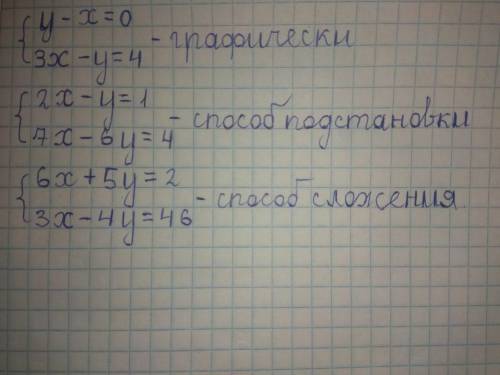 { y - x = 0
3x - y = 4 - графически
{ 2x - y = 1
7x - 6y = 4 - способ подстановки
{ 6x + 5y = 2
3x - 4y = 46 - способ сложения.